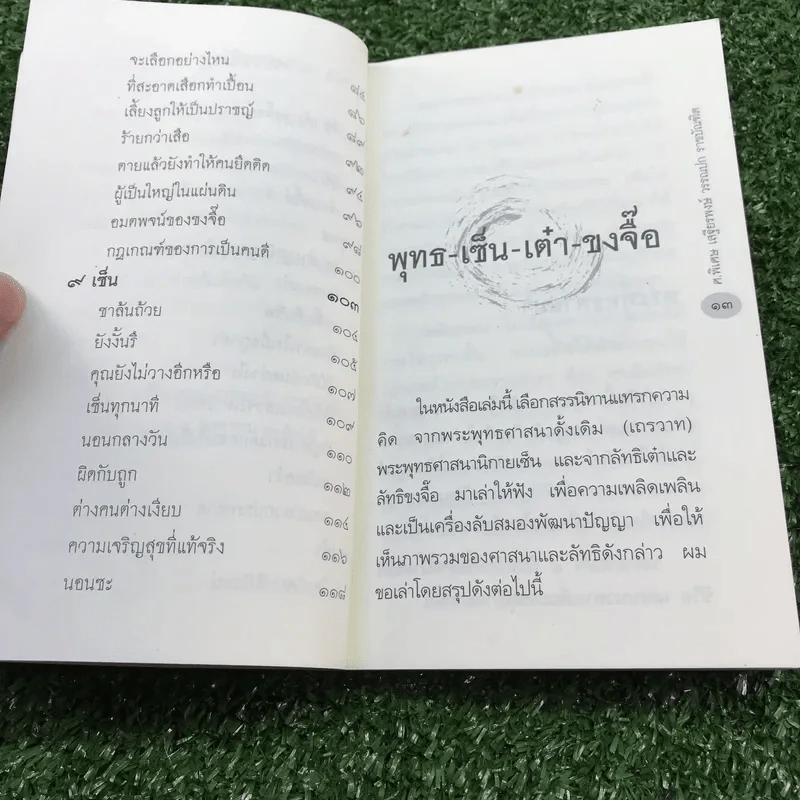 จะเลือกอย่างไหน ๘๔
ที่สะอาดเสือกทำเปื้อน ๘๖
เลี้ยงลูกให้เป็นปราชญ์ ๘๗
ร้ายกว่าเสือ ๙๒
ตายแล้วยังทำให้คนยึดติด ๙๔
ผู้เป็นใหญ่ในแผ่นดิน ๙๖
อมตพจน์ของขงจื๊อ ๙๘
กฎเกณฑ์ของการเป็นคนดี ๑๐๐
๙ เซ็น ๑๐๓
ชาล้นถ้วย ๑๐๔
ยังงั้นรึ ๑๐๕
คุณยังไม่วางอีกหรือ ๑๐๗
เซ็นทุกนาที ๑๐๙
นอนกลางวัน ๑๑๐
ผิดกับถูก ๑๑๒
ต่างคนต่างเงียบ ๑๑๔
ความเจริญสุขที่แท้จริง ๑๑๖
นอนซะ ๑๑๘
พุทธ-เซ็น-เต๋า-ขงจื๊อ
ศ.พิเศษ เสฐียรพงษ์ วรรณปก ราชบัณฑิต
๑๓
ในหนังสือเล่มนี้ เลือกสรรนิทานแทรกความ
คิด จากพระพุทธศาสนาดั้งเดิม (เถรวาท)
พระพุทธศาสนานิกายเซ็น และจากลัทธิเต๋าและ
ลัทธิขงจื๊อ มาเล่าให้ฟัง เพื่อความเพลิดเพลิน
และเป็นเครื่องลับสมองพัฒนาปัญญา เพื่อให้
เห็นภาพรวมของศาสนาและลัทธิดังกล่าว ผม
ขอเล่าโดยสรุปดังต่อไปนี้